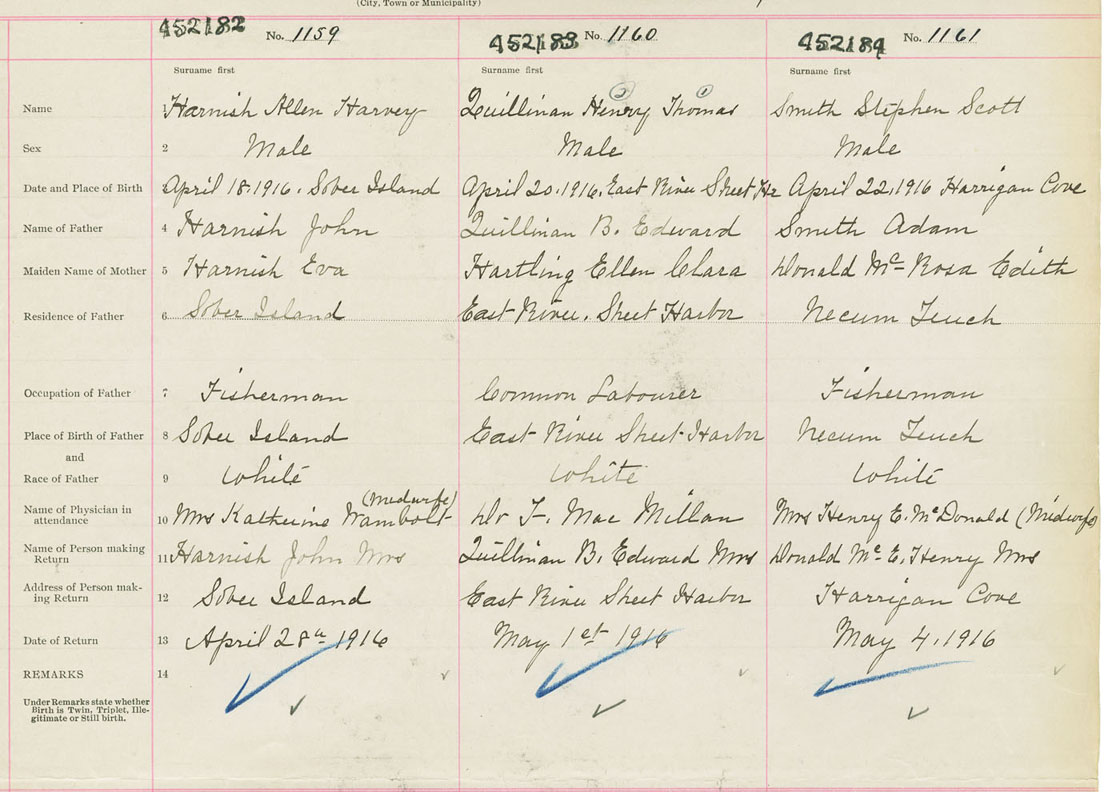 (City, Town or Municipality)
452182 No. 1159 452183 No. 1160 452184 No. 1161
Surname first Surname first Surname first
Name 1 Harnish Allen Harvey Quillinan Henry Thomas Smith Stephen Scott
2 1
Sex 2 Male Male Male
Date and Place of Birth April 18.1916. Sober Island April 20.1916. East River Sheet Hr April 22.1916 Harrigan Cove
Name of Father 4 Harnish John Quillinan B. Edward Smith Adam
Maiden Name of Mother 5 Harnish Eva Hartling Ellen Clara Donald Mc- Rosa Edith
Residence of Father 6 Sober Island East River. Sheet Harbor Necum Teuch
Occupation of Father 7 Fisherman Common Labourer Fisherman
Place of Birth of Father 8 Sober Island East River Sheet Harbor Necum Teuch
and
Race of Father 9 White White White
(Midwife)
Name of Physician in attendance 10 Mrs Katherine Wambolt Dr F. Mac Millan Mrs Henry E. McDonald (Midwife)
Name of Person making Return 11 Harnish John Mrs Quillinan B. Edward Mrs Donald Mc E. Henry Mrs
Address of Person mak-ing Return 12 Sober Island East River Sheet Harbor Harrigan Cove
Date of Return 13 April 28th 1916 May 1st 1916 May 4, 1916
REMARKS 14
Under Remarks state whether
Birth is Twin, Triplet, Ille-
gitimate or Still birth.